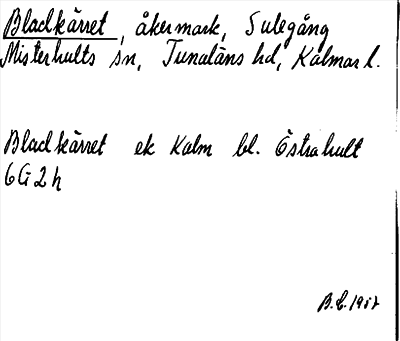 Bladkärret, åkermark, Sulegång
Misterhults sn, Tunaläns hd, Kalmar l.
Bladkärret ek Kalm bl. Östrahult
6G2h
B.L. 1957